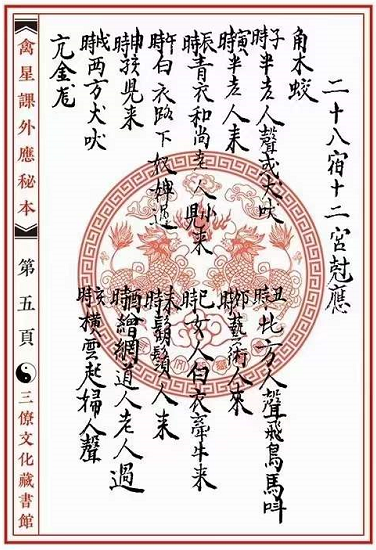 二十八宿十二宮尅應
角木蛟
子時半老人聲或犬吠
丑時北方人聲飛鳥馬叫
寅時半老人來
卯時藝術人來
辰時青衣和尚老人小兒来
巳時女人白衣牽牛来
午時白衣路下奴婢過
未時鬍鬚人来
申時孩兒来
酉時繒網道人老人過
戌時西方犬吠
亥時橫雲起婦人聲
亢金龙
《禽星課外應秘本》
第五頁
三僚文化藏書館